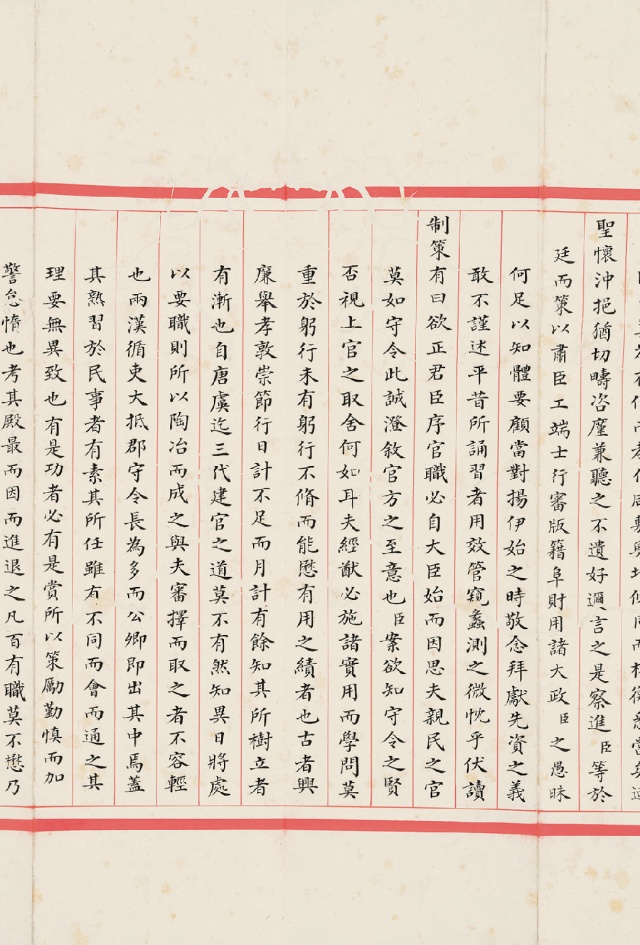 聖懷沖挹猶切疇咨廑兼聽之不遺好邇言之是察進臣等於
廷而策以肅臣工端士行審版籍阜財用諸大政臣之愚昧
何足以知體要顧當對揚伊始之時敬念拜獻先資之義
敢不謹述平昔所誦習者用效管窺蠡測之微忱乎伏讀
制策有曰欲正君臣序官職必自大臣始而因思夫親民之官
莫如守令此誠澄敘官方之至意也臣案欲知守令之賢
否視上官之取舍何如耳夫經猷必施諸實用而學問莫
重於躬行未有躬行不脩而能懋有用之績者也古者興
廉舉孝敦崇節行日計不足而月計有餘知其所樹立者
有漸也自唐虞迄三代建官之道莫不有然知異日將處
以要職則所以陶冶而成之與夫審擇而取之者不容輕
也兩漢循吏大抵郡守令長為多而公卿即出其中焉蓋
其熟習於民事者有素其所任雖有不同而會而通之其
理要無異致也有是功者必有是賞所以策勵勤慎而加
警怠惰也考其殿最而因而進退之凡百有職莫不懋乃